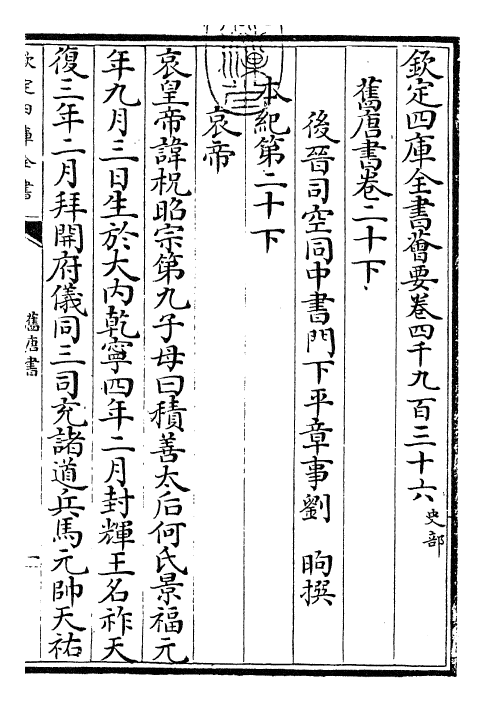 欽定四庫全書薈要卷四千九百三十六 史部
舊唐書卷二十下
後晉司空同中書門下平章事劉 昫撰
本紀第二十下
哀帝
哀皇帝諱柷昭宗第九子母曰積善太后何氏景福元
年九月三日生於大內乾寧四年二月封輝王名祚天
復三年二月拜開府儀同三司充諸道兵馬元帥天祐
欽定四庫全書
舊唐書
一